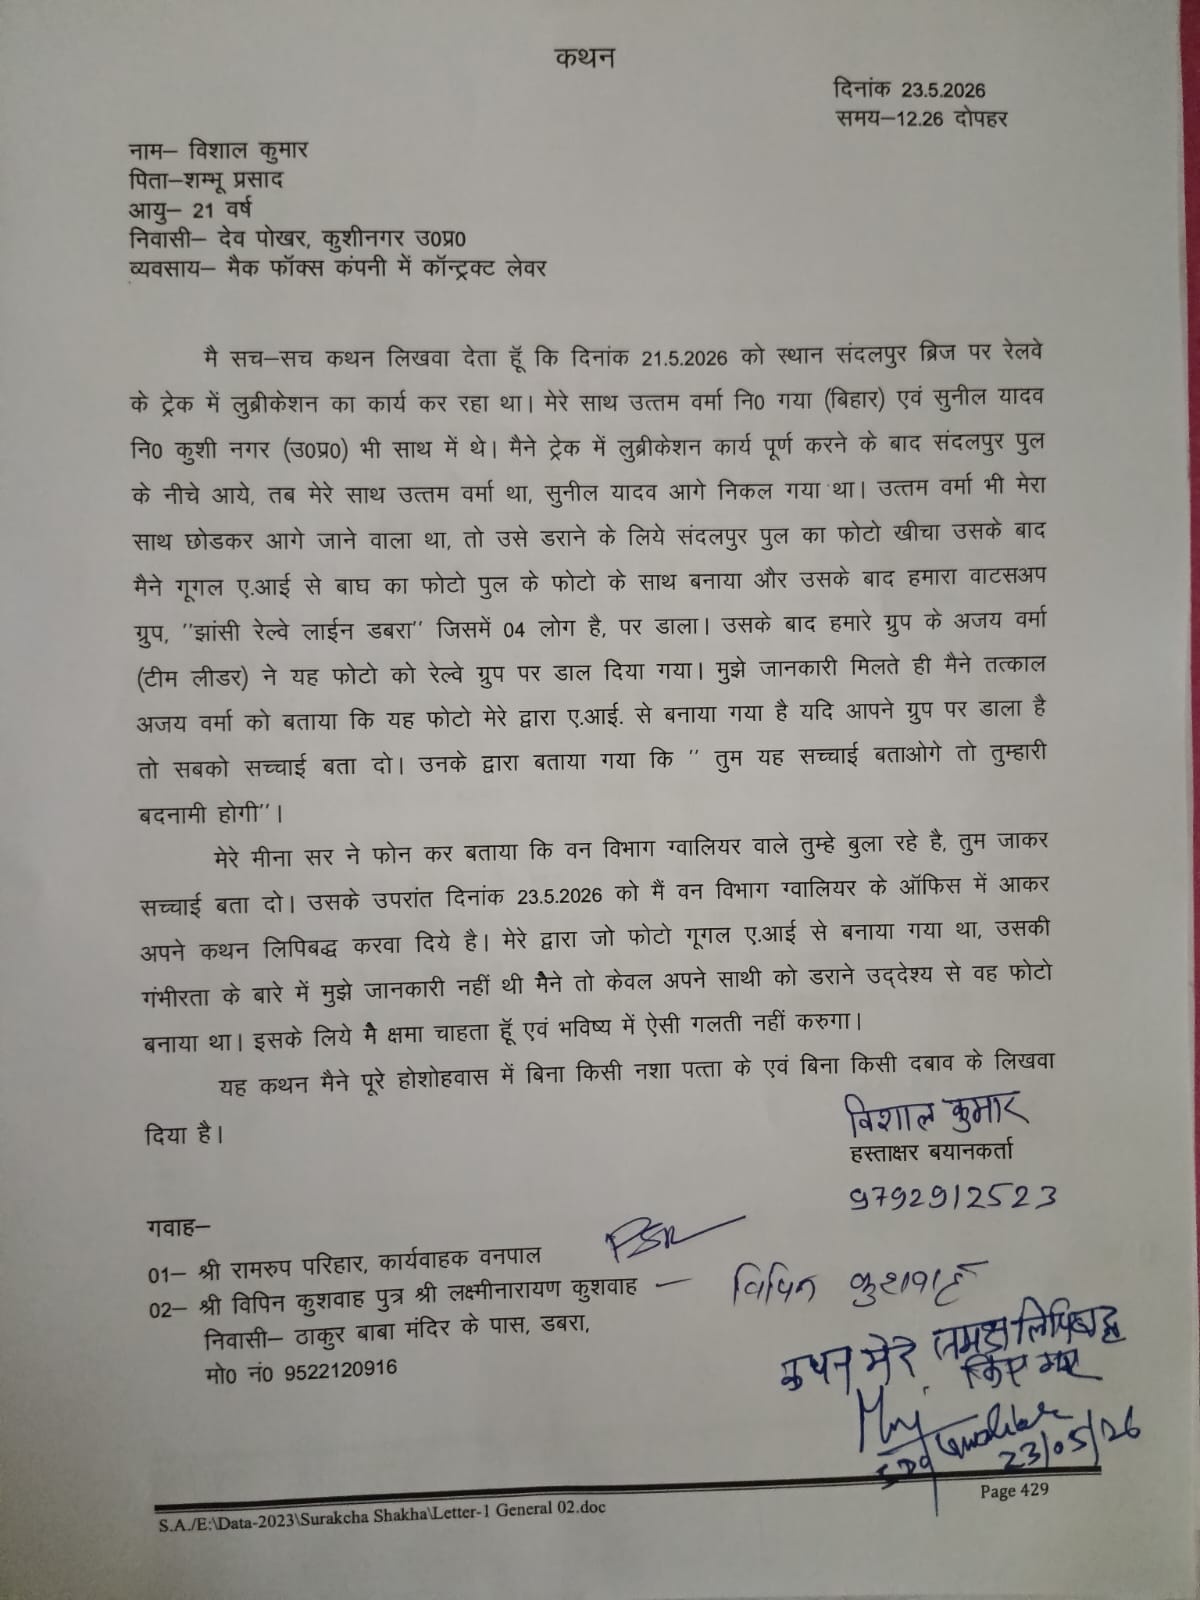 कथन
दिनांक 23.5.2026
समय–12.26 दोपहर
नाम– विशाल कुमार
पिता–शम्भू प्रसाद
आयु– 21 वर्ष
निवासी– देव पोखर, कुशीनगर उ0प्र0
व्यवसाय– मैक फॉक्स कंपनी में कॉन्ट्रक्ट लेवर
मै सच–सच कथन लिखवा देता हूँ कि दिनांक 21.5.2026 को स्थान संदलपुर ब्रिज पर रेलवे
के ट्रेक में लुब्रीकेशन का कार्य कर रहा था। मेरे साथ उत्तम वर्मा नि0 गया (बिहार) एवं सुनील यादव
नि0 कुशी नगर (उ0प्र0) भी साथ में थे। मैने ट्रेक में लुब्रीकेशन कार्य पूर्ण करने के बाद संदलपुर पुल
के नीचे आये, तब मेरे साथ उत्तम वर्मा था, सुनील यादव आगे निकल गया था। उत्तम वर्मा भी मेरा
साथ छोडकर आगे जाने वाला था, तो उसे डराने के लिये संदलपुर पुल का फोटो खीचा उसके बाद
मैने गूगल ए.आई से बाघ का फोटो पुल के फोटो के साथ बनाया और उसके बाद हमारा वाटसअप
ग्रुप, ''झांसी रेल्वे लाईन डबरा'' जिसमें 04 लोग है, पर डाला। उसके बाद हमारे ग्रुप के अजय वर्मा
(टीम लीडर) ने यह फोटो को रेल्वे ग्रुप पर डाल दिया गया। मुझे जानकारी मिलते ही मैने तत्काल
अजय वर्मा को बताया कि यह फोटो मेरे द्वारा ए.आई. से बनाया गया है यदि आपने ग्रुप पर डाला है
तो सबको सच्चाई बता दो। उनके द्वारा बताया गया कि '' तुम यह सच्चाई बताओगे तो तुम्हारी
बदनामी होगी''।
मेरे मीना सर ने फोन कर बताया कि वन विभाग ग्वालियर वाले तुम्हे बुला रहे है, तुम जाकर
सच्चाई बता दो। उसके उपरांत दिनांक 23.5.2026 को मैं वन विभाग ग्वालियर के ऑफिस में आकर
अपने कथन लिपिबद्ध करवा दिये है। मेरे द्वारा जो फोटो गूगल ए.आई से बनाया गया था, उसकी
गंभीरता के बारे में मुझे जानकारी नहीं थी मैने तो केवल अपने साथी को डराने उद्देश्य से वह फोटो
बनाया था। इसके लिये मै क्षमा चाहता हूँ एवं भविष्य में ऐसी गलती नहीं करुगा।
यह कथन मैने पूरे होशोहवास में बिना किसी नशा पत्ता के एवं बिना किसी दबाव के लिखवा
दिया है।
विशाल कुमार
हस्ताक्षर बयानकर्ता
9792912523
गवाह–
01– श्री रामरुप परिहार, कार्यवाहक वनपाल
02– श्री विपिन कुशवाह पुत्र श्री लक्ष्मीनारायण कुशवाह – विपिन कुशवाह
निवासी– ठाकुर बाबा मंदिर के पास, डबरा,
मो0 नं0 9522120916
कथन मेरे समक्ष लिपिबद्ध
किए गए
SDO Gwalior
23/05/26
Page 429
S.A./E:\Data-2023\Surakcha Shakha\Letter-1 General 02.doc